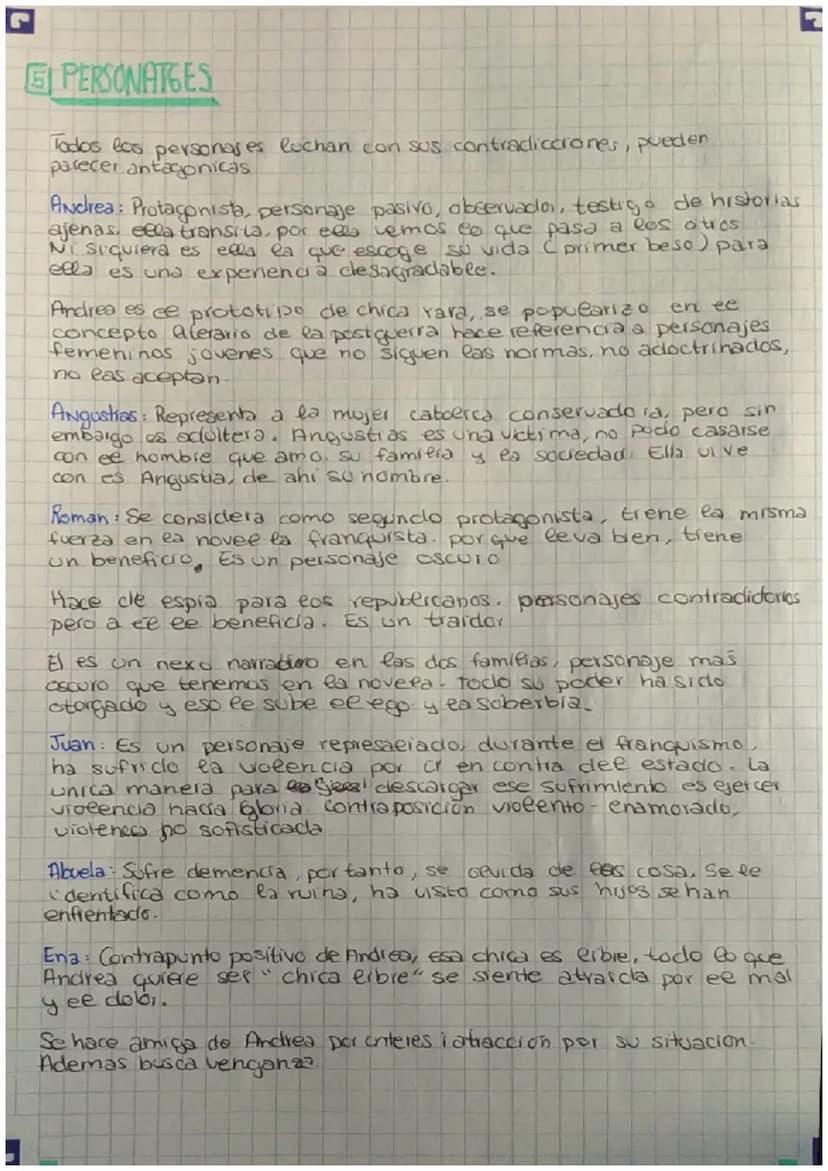 5| PERSONATGES
Todos los personajes luchan con sus contradicciones, pueden
parecer antagonicas
Andrea: Protagonista, personaje pasivo, observador, testigo de historias
ajenas, ella transita, por ella vemos lo que pasa a los otros
Ni siquiera es ella la que escoge su vida (primer beso) para
ella es una experiencia desagradable.
Andrea es el prototipo de chica rara, se popularizo en el
concepto literario de la postguerra hace referencia a personajes
femeninos jovenes que no siguen las normas, no adoctrinados,
no las aceptan.
Angustias: Representa a la mujer catolica conservadora, pero sin
embargo es adultera. Angustias es una victima, no pudo casarse
con el hombre que amo, su familia y la sociedad. Ella vive
con es Angustia, de ahi su nombre.
Roman: Se considera como segundo protagonista, tiene la misma
fuerza en la novela franquista. porque leva bien, tiene
un beneficio. Es un personaje oscuro
Hace de espia para los republicanos. personajes contradictorios
pero a el le beneficia. Es un traidor
El es un nexo narrativo en las dos familias, personaje mas
oscuro que tenemos en la novela. Todo su poder ha sido
otorgado y eso le sube el ego y la soberbia.
Juan: Es un personaje represaliado, durante el franquismo,
ha sufrido la violencia por ir en contra del estado. La
unica manera para descargar ese sufrimiento es ejercer
violencia hacia Gloria. Contraposición violento - enamorado,
violencia no sofisticada
Abuela: Sufre demencia, por tanto, se olvida de las cosa. Se le
identifica como la ruina, ha visto como sus hijos se han
enfrentado.
Ena: Contrapunto positivo de Andrea, esa chica es libre, todo lo que
Andrea quiere ser "chica libre" se siente atraida por el mal
y el dolor.
Se hace amiga de Andrea por interes i atraccion por su situacion.
Ademas busca venganza.